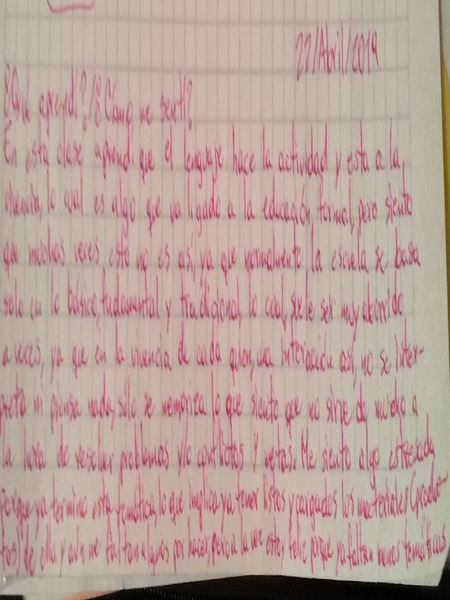 22/Abril/2019
¿Qué aprendí? / ¿Cómo me sentí?
En esta clase aprendí que el lenguaje hace la actividad y esta a la
vivencia, lo cual es algo que va ligado a la educación formal, pero siento
que muchas veces esto no es así, ya que normalmente la escuela se basa
solo en lo básico, fundamental y tradicional lo cual suele ser muy aburrido
a veces, ya que en la vivencia de cada quien, una interacción así, no se inter-
preta ni piensa nada, sólo se memoriza lo que siento que no sirve de mucho a
la hora de resolver problemas y/o conflictos y metas. Me siento algo estresada
porque ya termino esta temática, lo que implica ya tener listos y cargados los materiales (produc-
tos) de ella y aún me faltan algunos por hacer, pero a la vez estoy feliz porque ya faltan menos temáticas